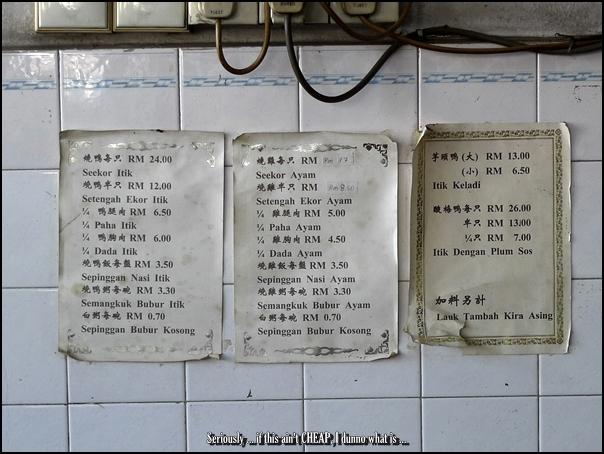 燒鴨每只 RM 24.00
Seekor Itik
燒鴨半只 RM 12.00
Setengah Ekor Itik
¼ 鴨腿肉 RM 6.50
¼ Paha Itik
¼ 鴨胸肉 RM 6.00
¼ Dada Itik
燒鴨飯每盤 RM 3.50
Sepinggan Nasi Itik
燒鴨粥每碗 RM 3.30
Semangkuk Bubur Itik
白粥每碗 RM 0.70
Sepinggan Bubur Kosong
燒雞每只 RM Rm 17
Seekor Ayam
燒雞半只 RM Rm 8.50
Setengah Ekor Ayam
¼ 雞腿肉 RM 5.00
¼ Paha Ayam
¼ 雞胸肉 RM 4.50
¼ Dada Ayam
燒雞飯每盤 RM 3.50
Sepinggan Nasi Ayam
燒雞粥每碗 RM 3.30
Semangkuk Bubur Ayam
白粥每碗 RM 0.70
Sepinggan Bubur Kosong
芋頭鴨(大) RM 13.00
(小) RM 6.50
Itik Keladi
酸梅鴨每只 RM 26.00
半只 RM 13.00
¼只 RM 7.00
Itik Dengan Plum Sos
加料另計
Lauk Tambah Kira Asing
Seriously ...if this ain't CHEAP, I dunno what is ...